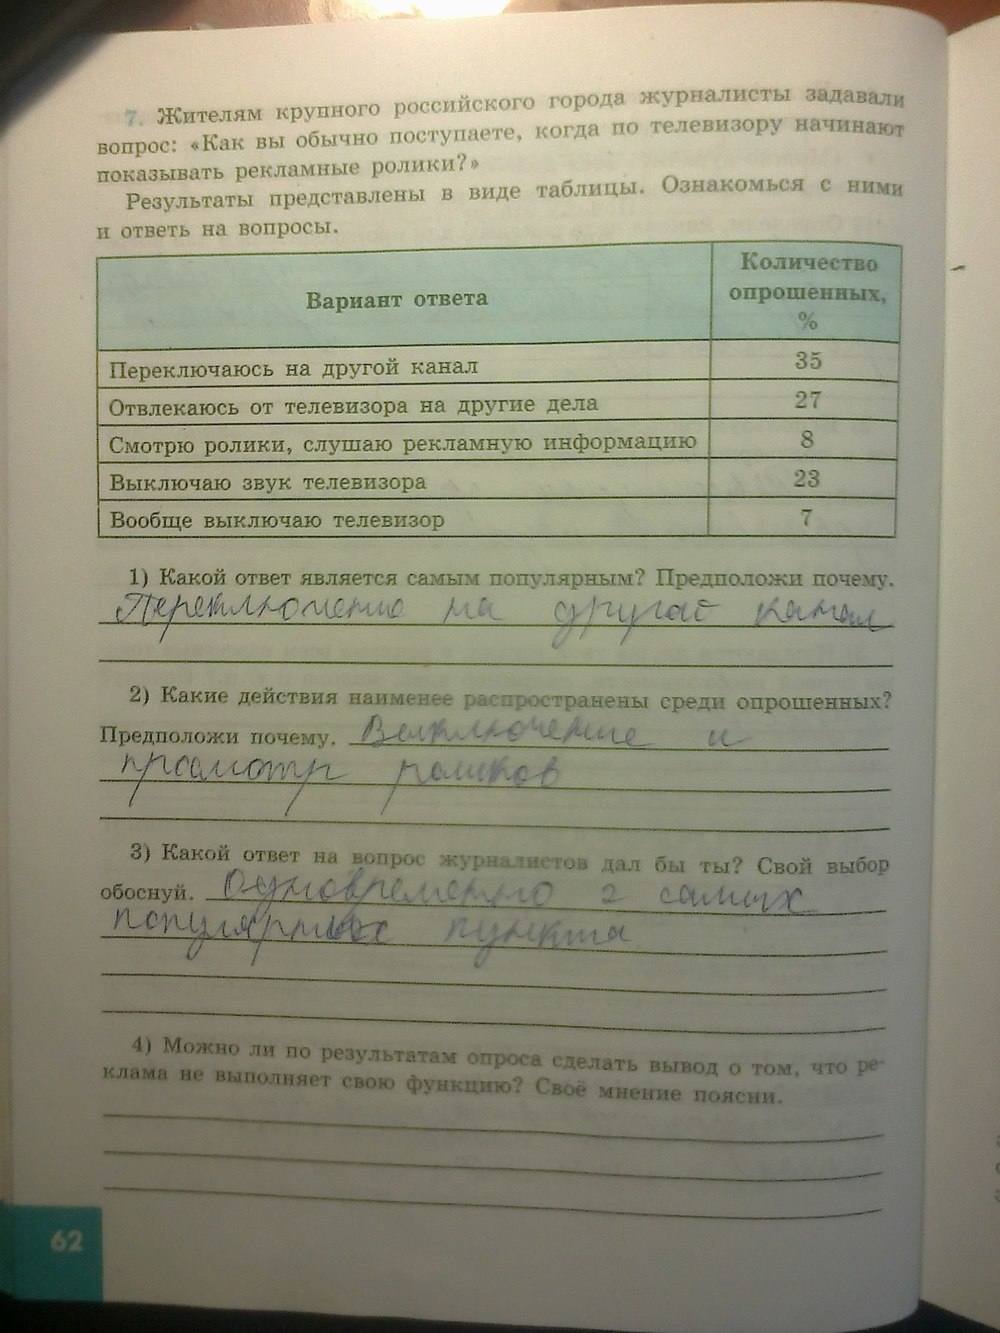 7. Жителям крупного российского города журналисты задавали
вопрос: «Как вы обычно поступаете, когда по телевизору начинают
показывать рекламные ролики?»
Результаты представлены в виде таблицы. Ознакомься с ними
и ответь на вопросы.
Вариант ответа
Количество
опрошенных,
%
Переключаюсь на другой канал 35
Отвлекаюсь от телевизора на другие дела 27
Смотрю ролики, слушаю рекламную информацию 8
Выключаю звук телевизора 23
Вообще выключаю телевизор 7
1) Какой ответ является самым популярным? Предположи почему.
Переключение на другой канал
2) Какие действия наименее распространены среди опрошенных?
Предположи почему. Выключение и
просмотр роликов
3) Какой ответ на вопрос журналистов дал бы ты? Свой выбор
обоснуй. Одновременно 2 самых
популярных пункта
4) Можно ли по результатам опроса сделать вывод о том, что ре-
клама не выполняет свою функцию? Своё мнение поясни.
62